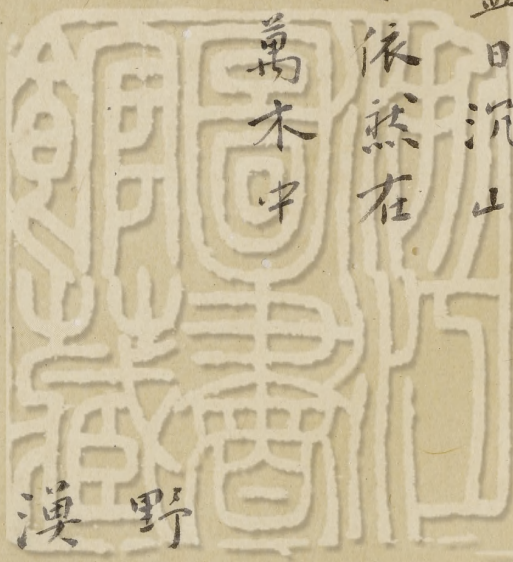 日沉山
依然在
萬木中
野
漠
浙江
圖書
館藏